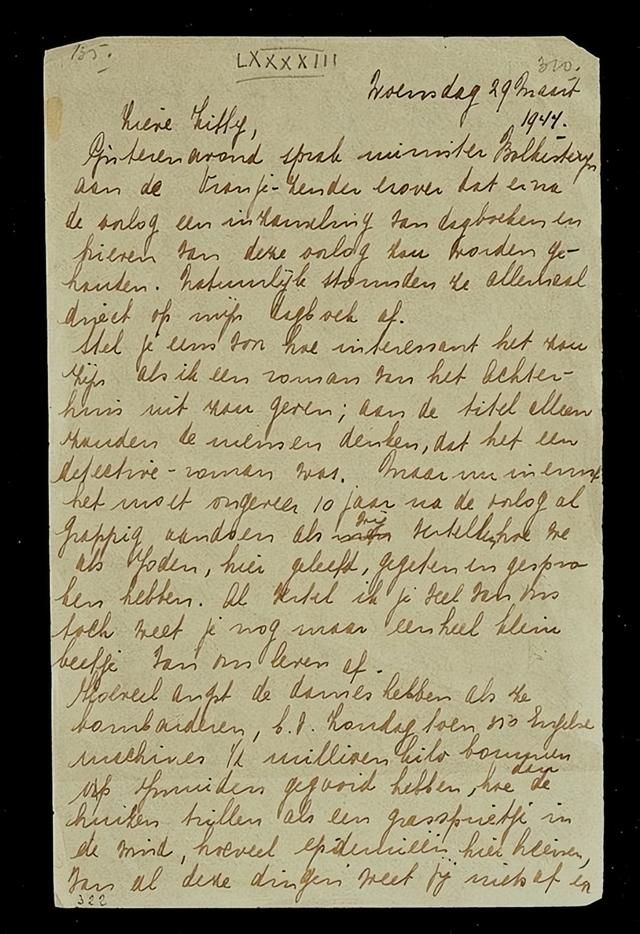 155.
LXXXXIII
320.
Woensdag 29 Maart
1944.
Lieve Kitty,
Gisterenavond sprak minister Bolkesteyn
aan de Oranje-zender erover dat er na
de oorlog een inzameling van dagboeken en
brieven van deze oorlog zou worden ge-
houden. Natuurlijk stormden ze allemaal
direct op mijn dagboek af.
Stel je eens voor hoe interessant het zou
zijn als ik een roman van het Achter-
huis uit zou geven; aan de titel alleen
zouden de mensen denken, dat het een
detective-roman was. Maar nu in ernst
het moet ongeveer 10 jaar na de oorlog al
grappig aandoen als wij vertellen hoe we
als Joden, hier geleeft, gegeten en gespro
ken hebben. Al vertel ik je veel van ons
toch weet je nog maar een heel klein
beetje van ons leven af.
Hoeveel angst de dames hebben als ze
bombarderen, b.v. Zondag toen 350 Engelse
machines ½ millioen kilo bommen
op Ijmuiden gegooid hebben, hoe dan de
huizen trillen als een grassprietje in
de wind, hoeveel epidemieën hier heersen,
van al deze dingen weet jij niets af en
322